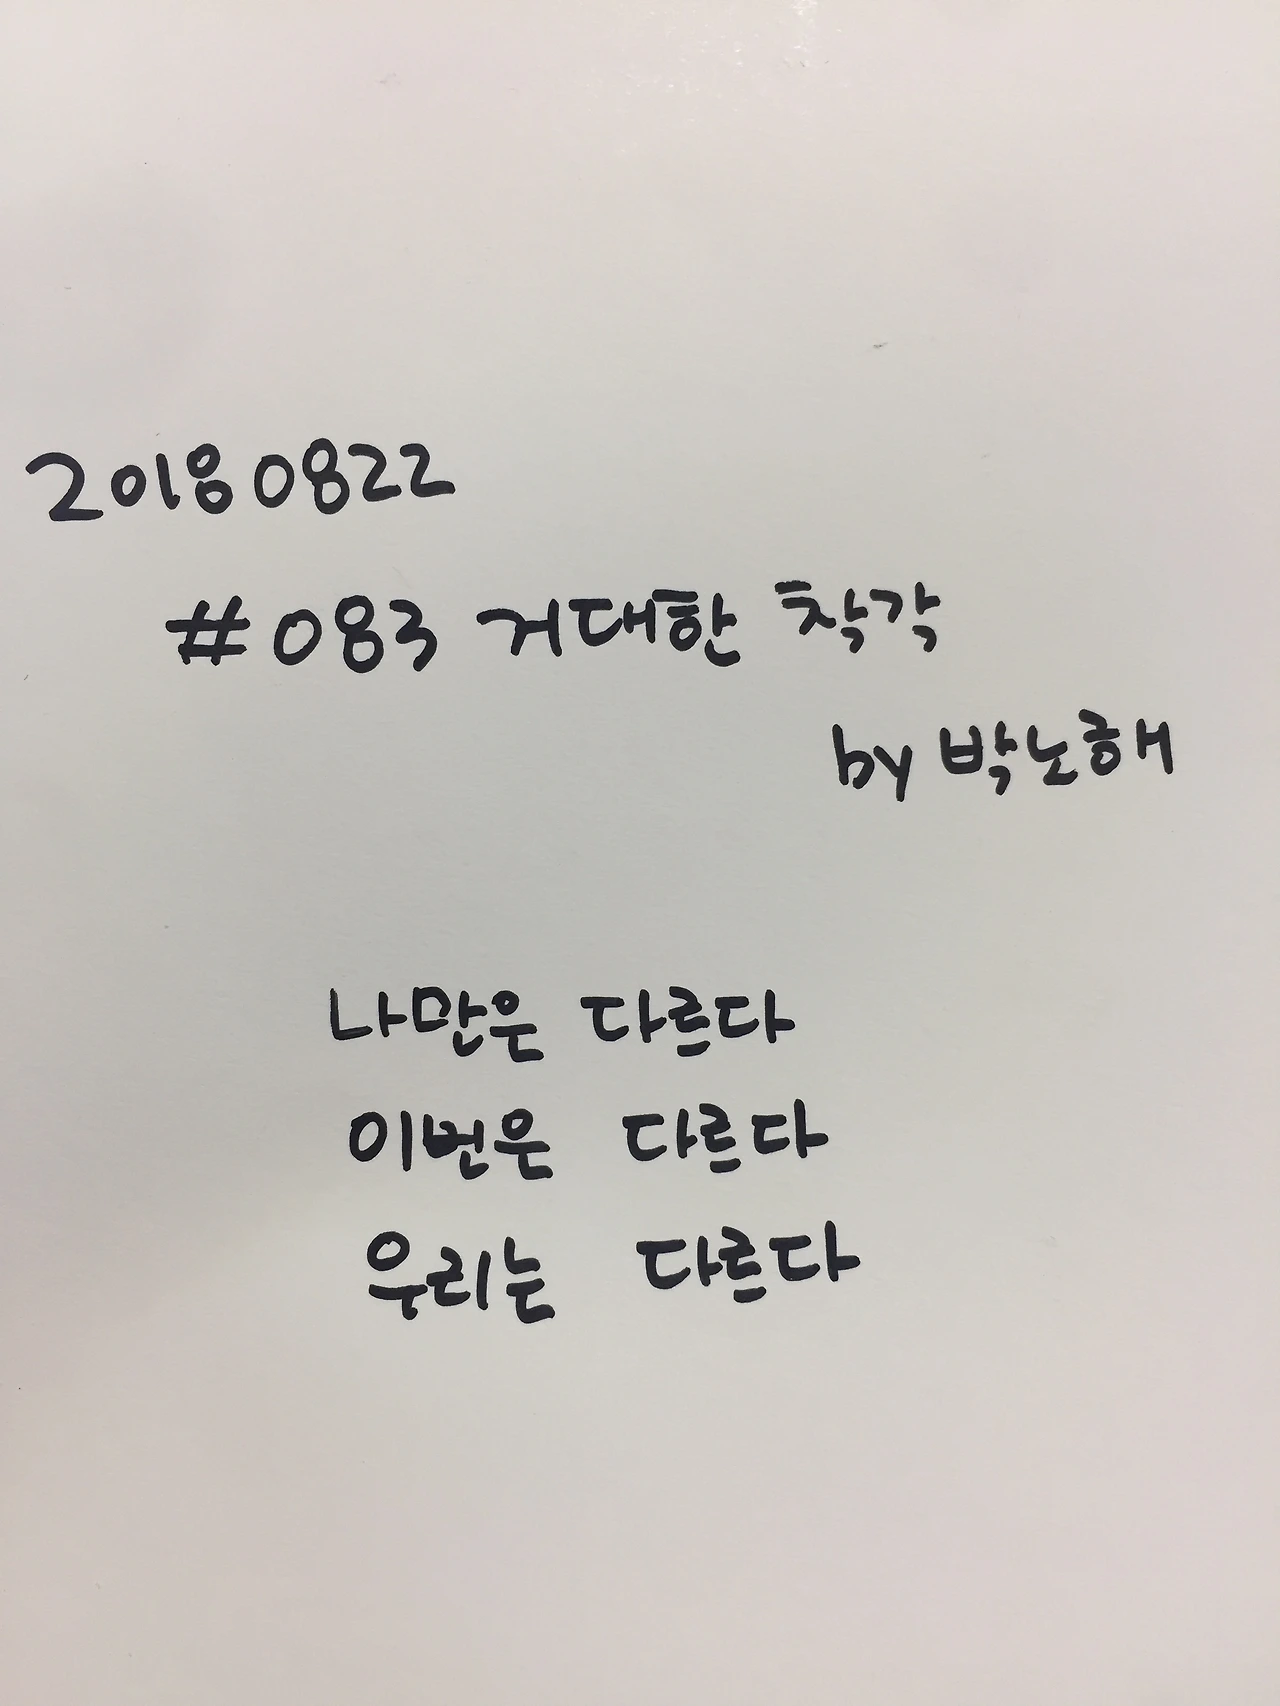 20180822
#083 거대한 착각
by 박노해
나만은 다르다
이번은 다르다
우리는 다르다